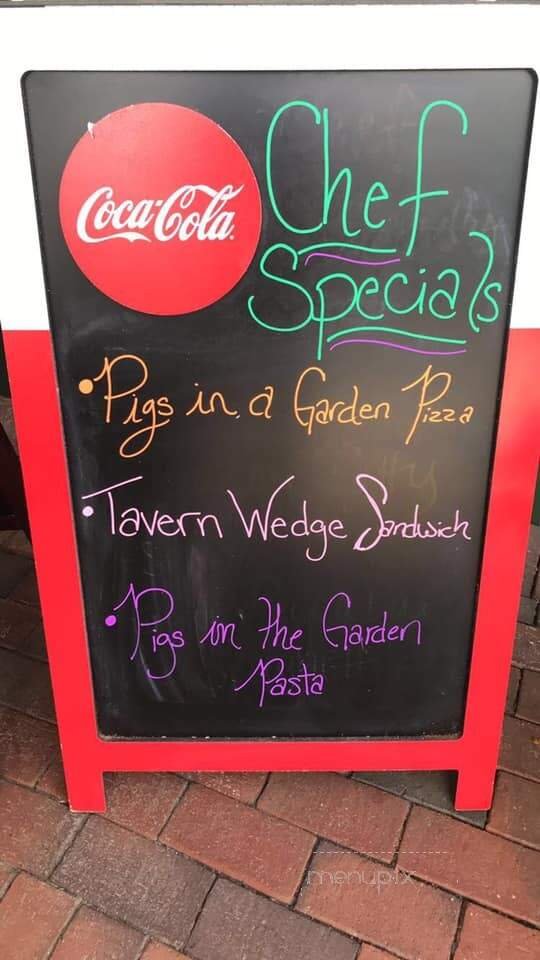 Coca-Cola
Chef
Specials
• Pigs in a Garden Pizza
• Tavern Wedge Sandwich
• Pigs in the Garden
Pasta
menupix